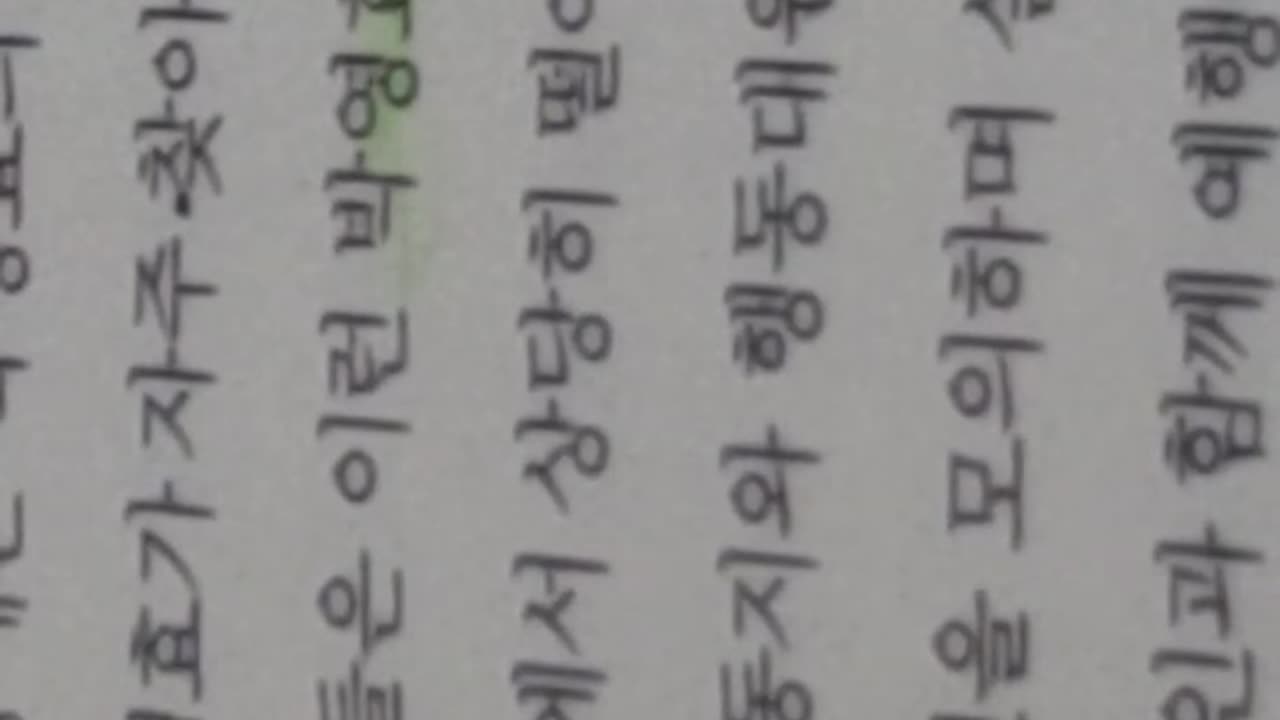 효가 자주 찾아
들은 이런 박영
에서 상당히 떨
동지와 행동대
을 모의하며
인과 함께 예행